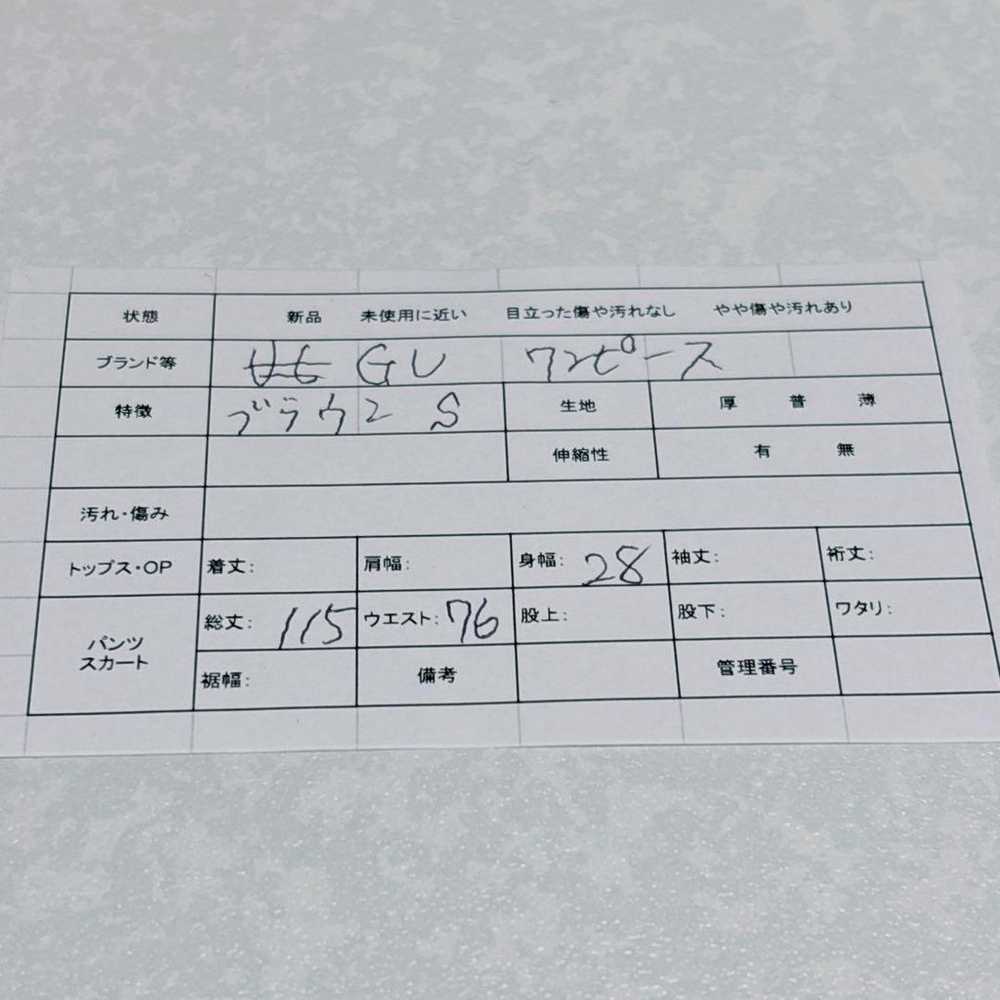 状態 新品 未使用に近い 目立った傷や汚れなし やや傷や汚れあり
ブランド等 GU ワンピース
特徴 ブラウン S 生地 厚 普 薄
伸縮性 有 無
汚れ・傷み
トップス・OP 着丈: 肩幅: 身幅: 28 袖丈: 裄丈:
パンツ スカート 総丈: 115 ウエスト: 76 股上: 股下: ワタリ:
裾幅: 備考 管理番号